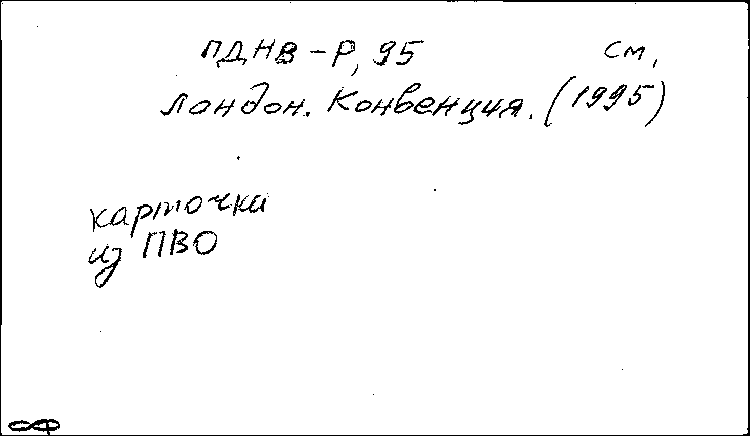 ПДНВ-Р, 95 см.
Лондон. Конвенция. (1995)
карточки
из ПВО